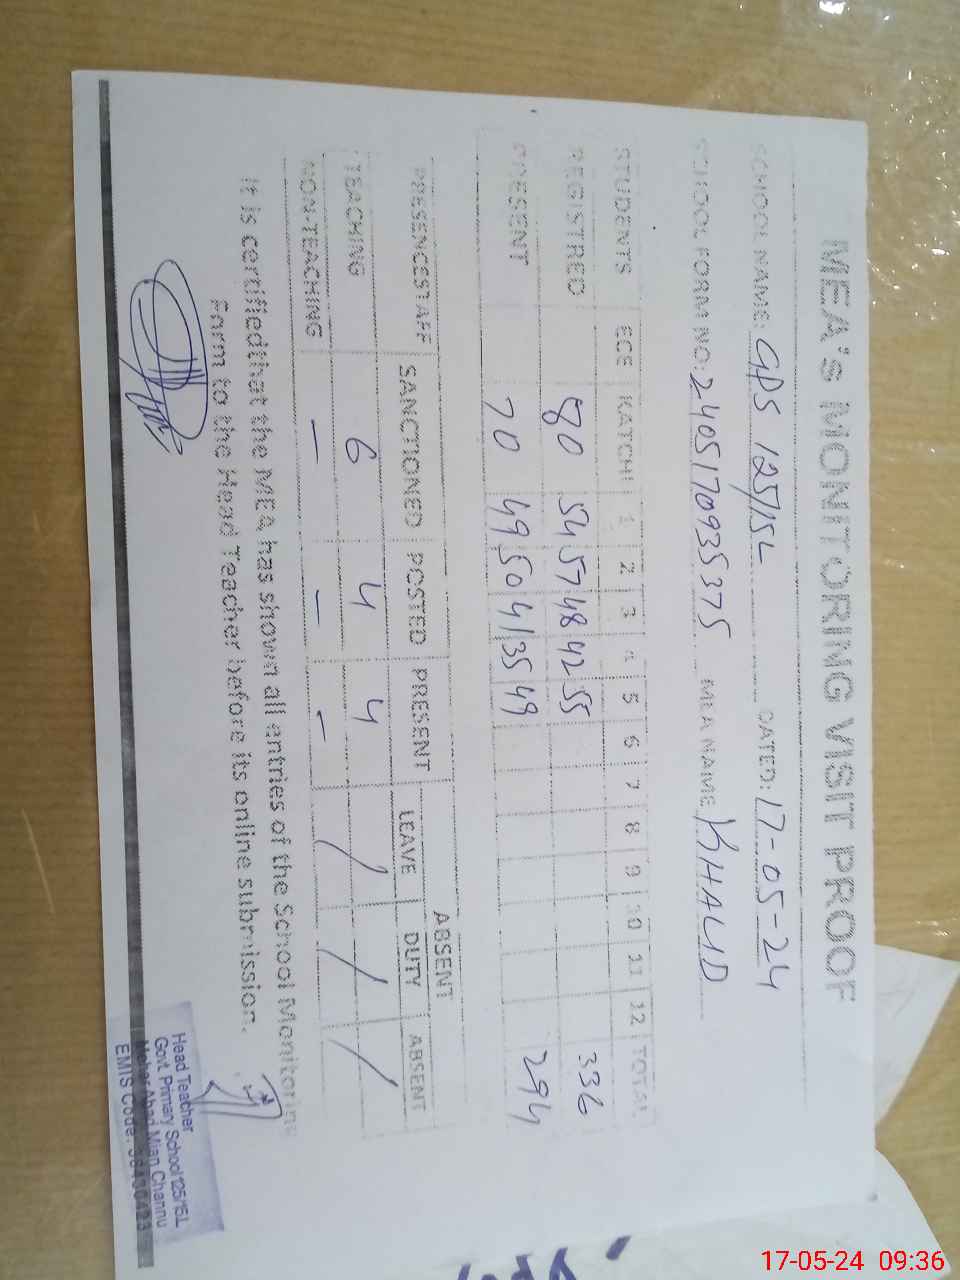 MEA's MONITORING VISIT PROOF
SCHOOL NAME: GPS 125/15L DATED: 17-05-24
SCHOOL FORM NO: 2405170935375 MEA NAME KHALID
STUDENTS ECE KATCHI 1 2 3 4 5 6 7 8 9 10 11 12 TOTAL
REGISTRED 80 54 57 48 42 55 336
PRESENT 70 49 50 41 35 49 294
PRESENCESTAFF SANCTIONED POSTED PRESENT ABSENT
LEAVE DUTY ABSENT
TEACHING 6 4 4 / / /
NON-TEACHING - - -
It is certifiedthat the MEA has shown all entries of the School Monitoring
Form to the Head Teacher before its online submission.
Head Teacher
Govt. Primary School 125/15.L
Mian Channu
EMIS Code:
17-05-24 09:36